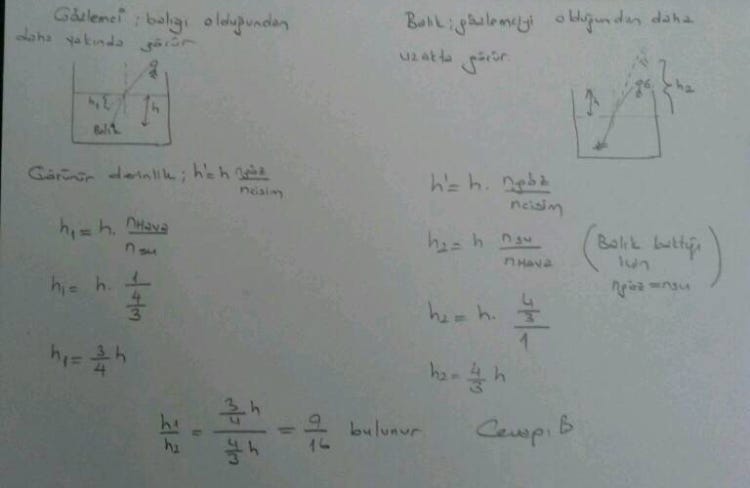 Gözlemci ; balığı olduğundan
daha yakında görür
h₁
h
Balık
Görünür derinlik ; h' = h ngöz/ncisim
h₁ = h. nHava/nsu
h₁ = h. 1/(4/3)
h₁ = 3/4 h
Balık ; gözlemciyi olduğundan daha
uzakta görür.
h
h₂
h' = h. ngöz/ncisim
h₂ = h nsu/nHava
(Balık baktığı
için
ngöz = nsu)
h₂ = h. (4/3)/1
h₂ = 4/3 h
h₁/h₂ = (3/4 h)/(4/3 h) = 9/16 bulunur Cevap: B